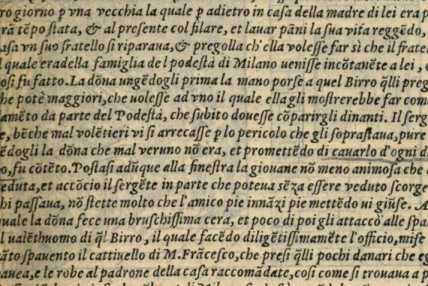 ro giorno p vna vecchia la quale p adietro in casa della madre di lei era p
rã tẽpo stata, & al presente col filare, et lauar pãni la sua vita reggẽdo,
asa vn suo fratello si riparaua, & pregolla ch'ella volesse far sì che il fratel
l quale era della famiglia del podestà di Milano uenisse incõtanẽte a lei,
osi fu fatto. La dõna ungẽdogli prima la mano porse a quel Birro q̃lli preg
he potè maggiori, che uolesse ad vno il quale ella gli mostrerebbe far com
amẽto da parte del Podestà, che subito douesse cõparirgli dinanti. Il serg
e, bẽche mal volẽtieri vi si arrecasse p lo pericolo che gli soprastaua, pure
ẽdogli la dõna che mal veruno nõ era, et promettẽdo di cauarlo d'ogni d
o, fu cõtẽto. Postasi adũque alla finestra la giouane nõ meno animosa che
eduta, et acciocio il sergẽte in parte che poteua sẽza essere veduto scorge
hi passaua, nõ stette molto che l'amico pie innãzi pie mettẽdo ui giũse. A
quale la dõna fece una bruschissima cera, et poco di poi gli attaccò alle spa
l ualẽthuomo di q̃l Birro, il quale facẽdo diligẽtissimamẽte l'officio, mise
ãto spauento il cattiuello di M. Frãcesco, che presi q̃lli pochi danari che eg
aueua, e le robe al padrone della casa raccomãdate, cosi come si trouaua a p